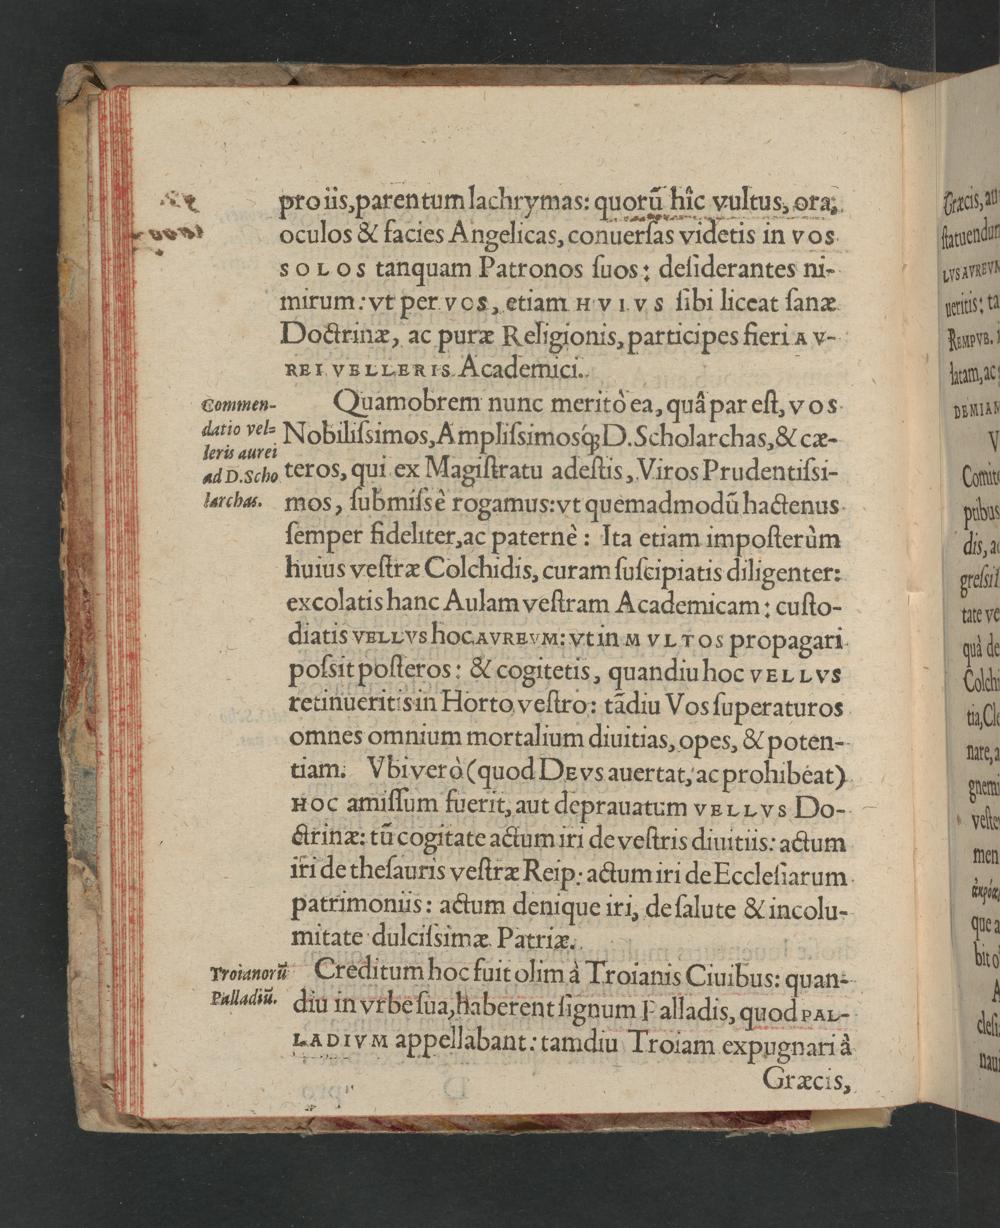 pro iis, parentum lachrymas: quorũ hîc vultus, ora,
oculos & facies Angelicas, conuerſas videtis in VOS
SOLOS tanquam Patronos ſuos: deſiderantes ni-
mirum: vt per VOS, etiam HVIVS ſibi liceat ſanæ
Doctrinæ, ac puræ Religionis, participes fieri AV-
REI VELLERIS Academici.
Quamobrem nunc meritò ea, quâ par eſt, VOS
Commen-
datio vel=
leris aurei
ad D. Scho
larchas.
Nobiliſsimos, Ampliſsimosq́; D. Scholarchas, & cæ-
teros, qui ex Magiſtratu adeſtis, Viros Prudentiſsi-
mos, ſubmiſsè rogamus: vt quemadmodũ hactenus
ſemper fideliter, ac paternè: Ita etiam impoſterùm
huius veſtræ Colchidis, curam ſuſcipiatis diligenter:
excolatis hanc Aulam veſtram Academicam: cuſto-
diatis VELLVS hoc AVREVM: vt in MVLTOS propagari
poſsit poſteros: & cogitetis, quandiu hoc VELLVS
retinueritis in Horto veſtro: tãdiu Vos ſuperaturos
omnes omnium mortalium diuitias, opes, & poten-
tiam. Vbi verò (quod DEVS auertat, ac prohibeat)
HOC amiſſum fuerit, aut deprauatum VELLVS Do-
ctrinæ: tũ cogitate actum iri de veſtris diuitiis: actum
iri de theſauris veſtræ Reip: actum iri de Eccleſiarum
patrimoniis: actum denique iri, de ſalute & incolu-
mitate dulciſsimæ Patriæ.
Troianorũ
Palladiũ.
Creditum hoc fuit olim à Troianis Ciuibus: quan-
diu in vrbe ſua, haberent ſignum Palladis, quod PAL-
LADIVM appellabant: tamdiu Troiam expugnari à
Græcis,
Græcis, au
ſtatuendum
LVS AVREVM
ueritis: ta
REMPVB.
latam, ac
DEMIAM
V
Comit
ptibus
dis, a
greſsi
tate ve
quà de
Colchi
tia, Cle
nare, a
gnem
veſte
men
que a
bit o
A
cleſi
nau